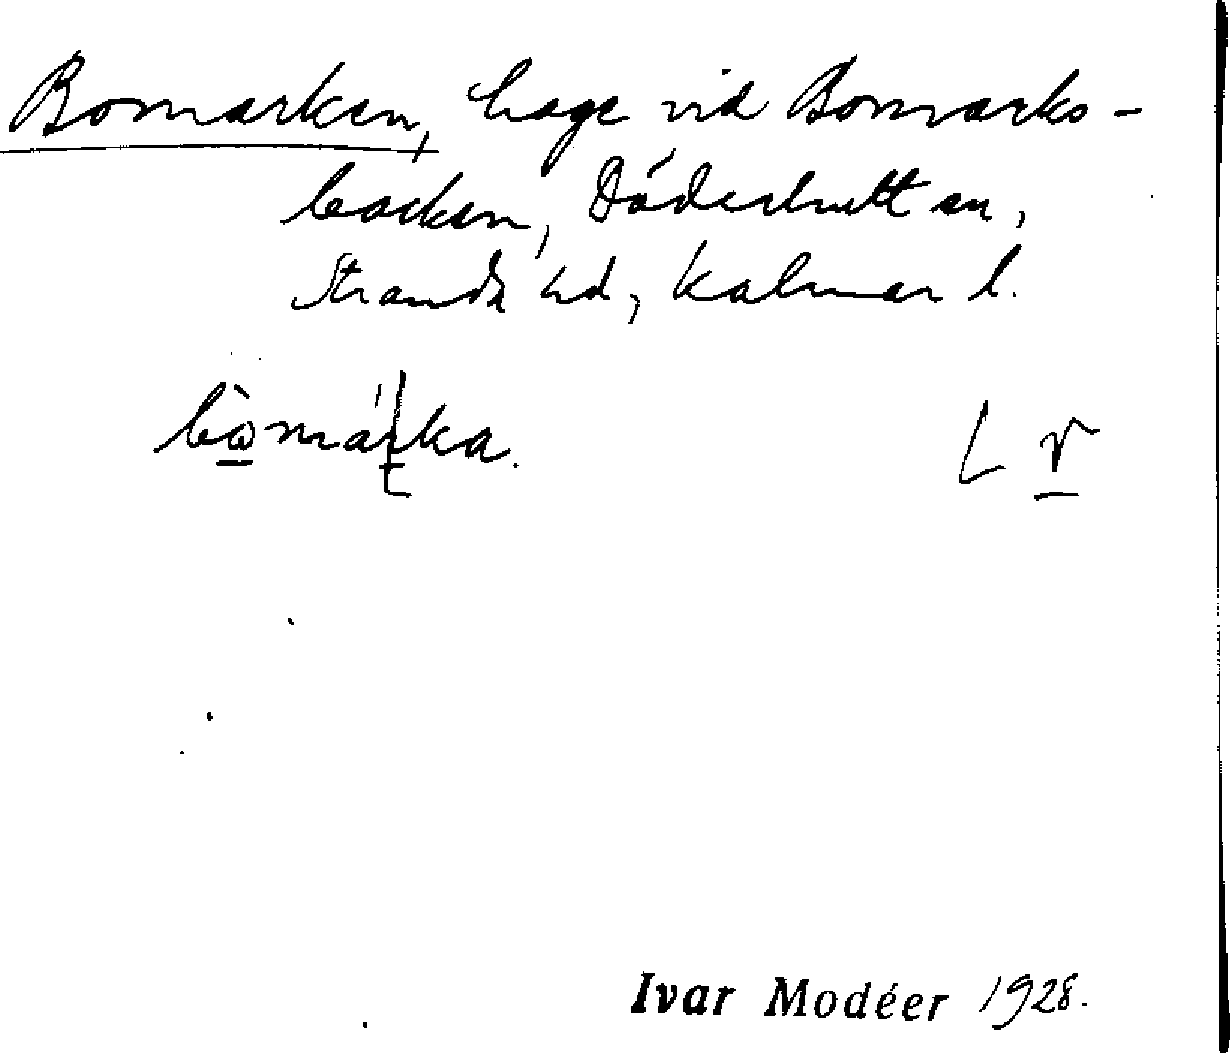 Bomarken, hage vid Bomarks-
backen, Döderhult sn,
Stranda hd, Kalmar l.
bòmárka. r
Ivar Modéer 1928.